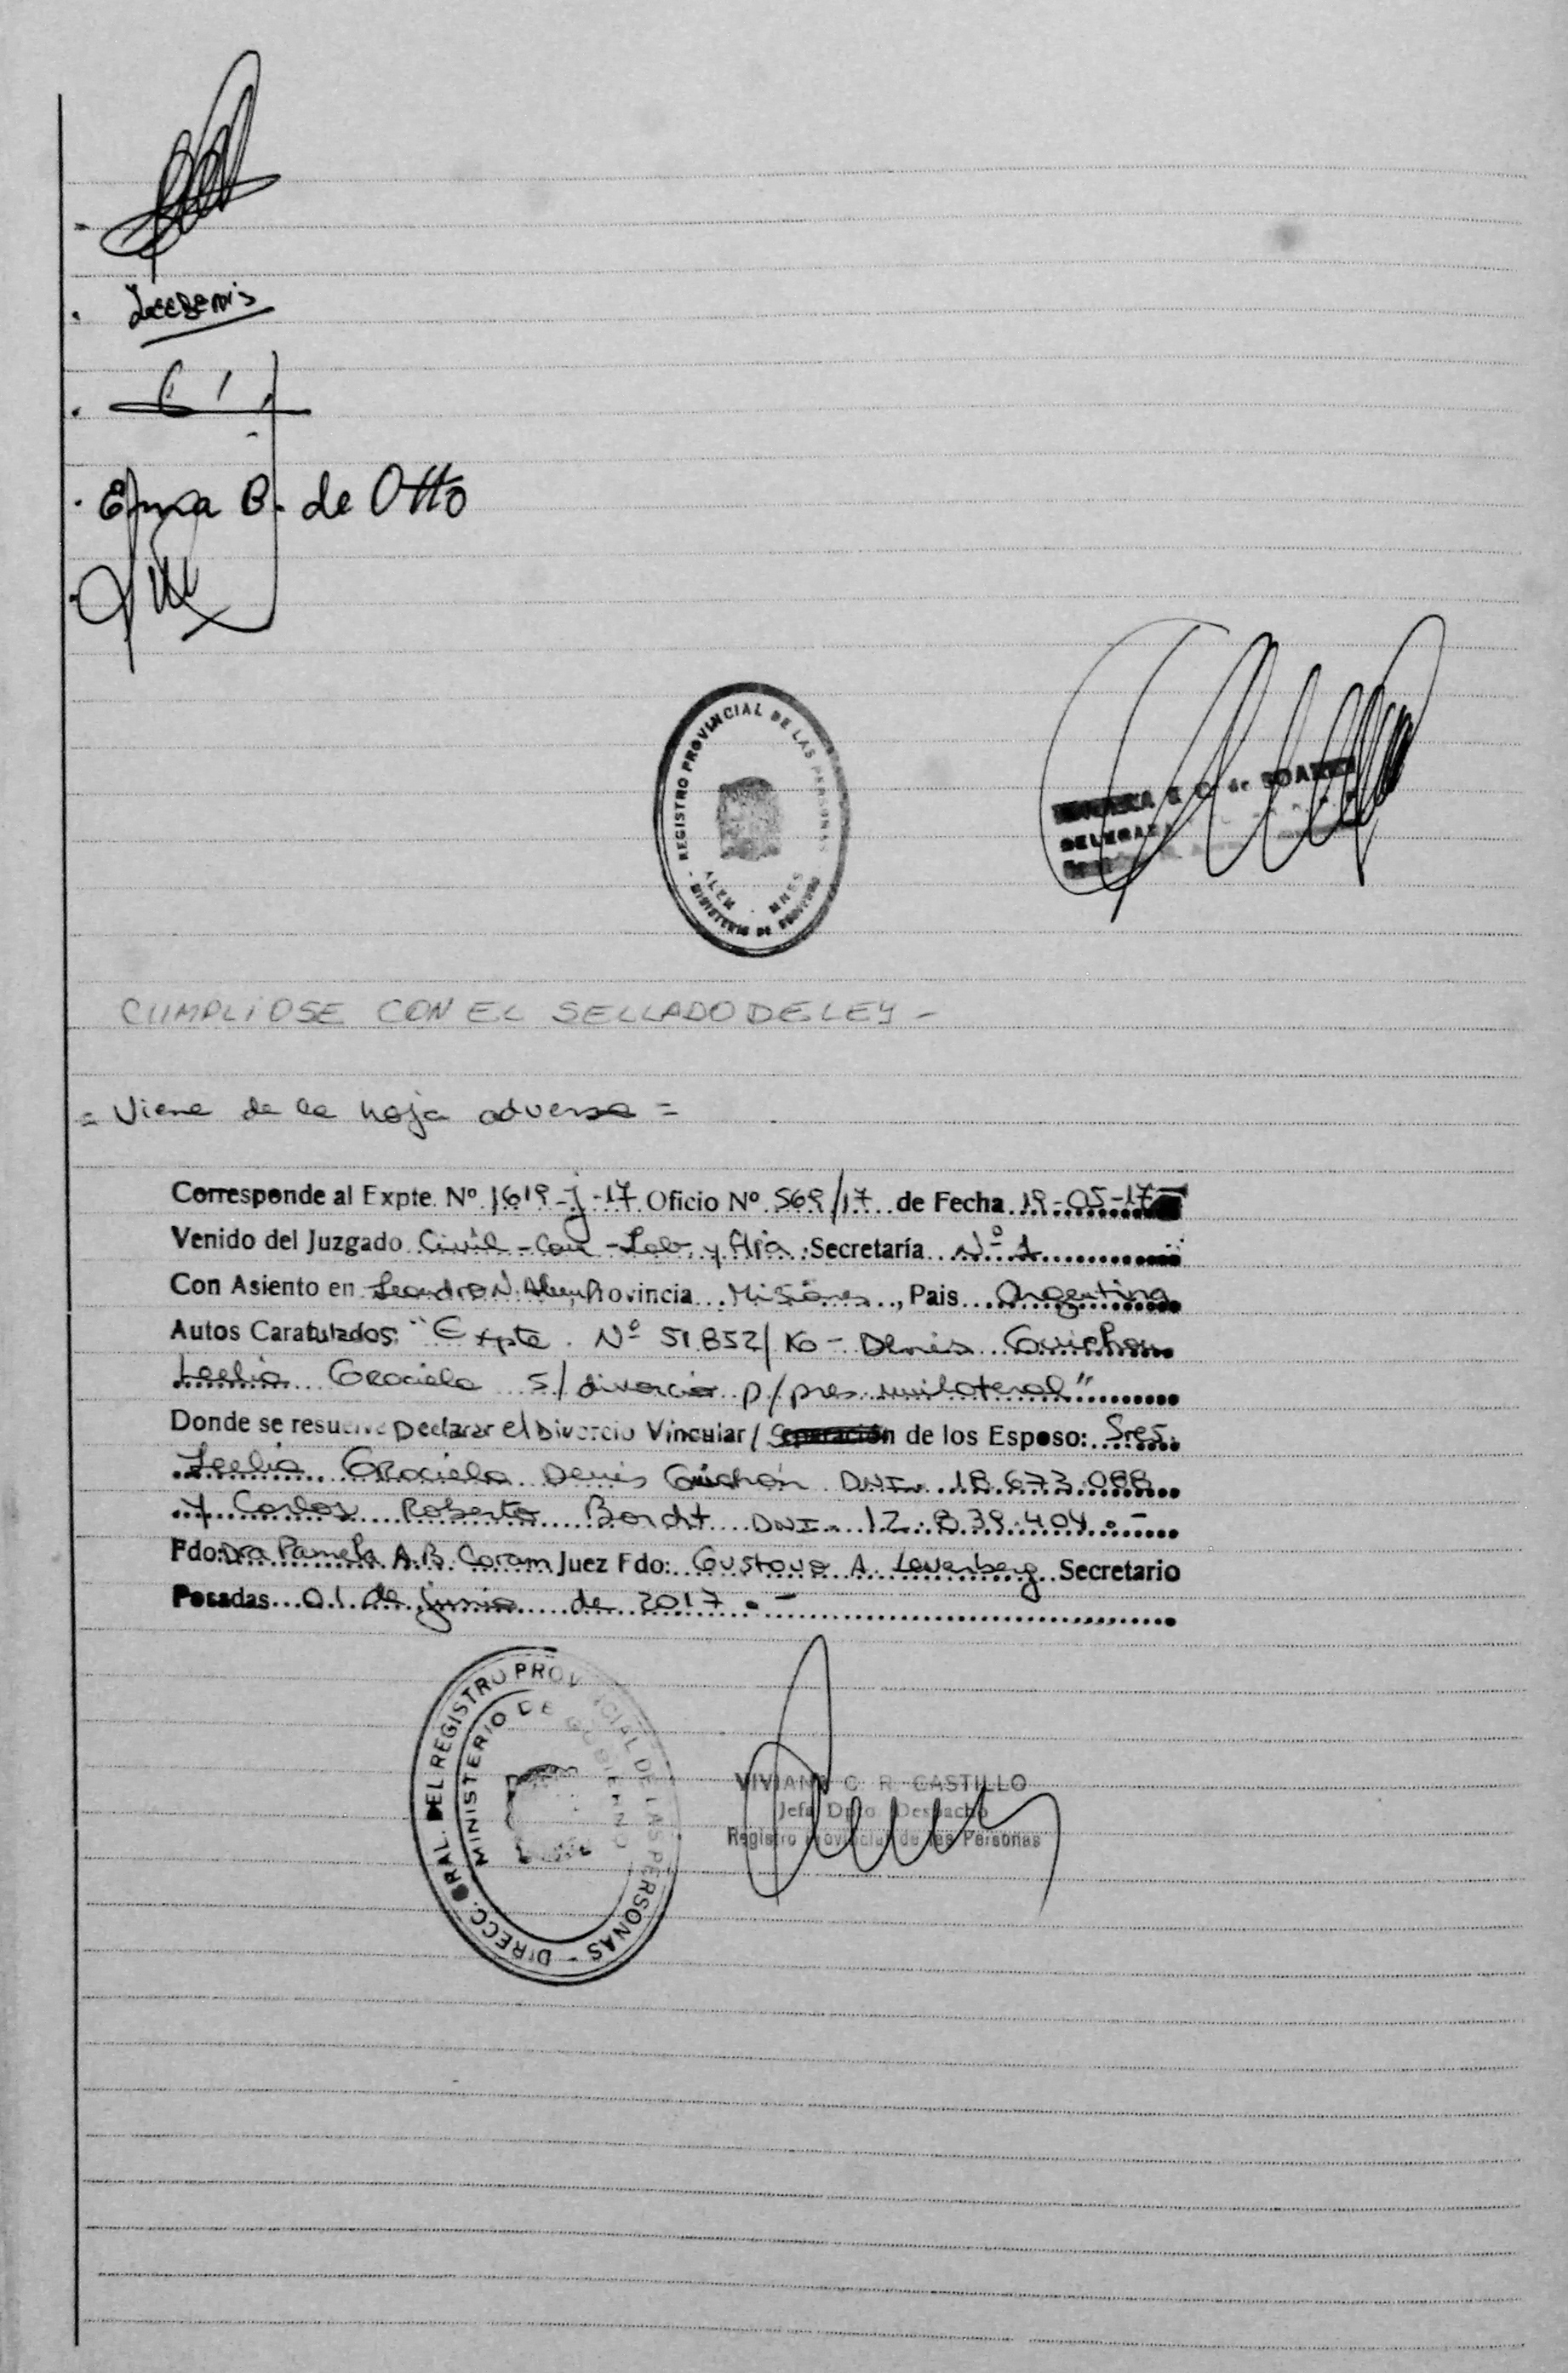 Elma B. de Otto
REGISTRO PROVINCIAL DE LAS PERSONAS
ALEM - MNES
MINISTERIO DE GOBIERNO
de SOAREZ
DELEGADA
CUMPLIOSE CON EL SELLADO DE LEY -
= Viene de la hoja adversa =
Corresponde al Expte. Nº 1619-J-17 Oficio Nº 569/17 de Fecha 19-05-17
Venido del Juzgado Civil - Com - Lab. y Flia. Secretaría Nº 1
Con Asiento en Leandro N. Alem Provincia Misiones, Pais Argentina
Autos Caratulados: "Expte. Nº 51.852/16 - Denis Guichon
Leelia Graciela s/ divorcio p/ pres. unilateral"
Donde se resuelve Declarar el Divorcio Vincular / Separación de los Esposo: Sres.
Leelia Graciela Denis Guichón DNI. 18.673.088
y Carlos Roberto Bordt DNI. 12.839.404.-
Fdo: Dra Pamela A.B. Coram Juez Fdo: Gustavo A. Leverberg Secretario
Posadas 01 de junio de 2017.-
DIRECC. GRAL. DEL REGISTRO PROVINCIAL DE LAS PERSONAS -
MINISTERIO DE GOBIERNO
VIVIANA C. R. CASTILLO
Jefa Dpto. Despacho
Registro Provincial de las Personas